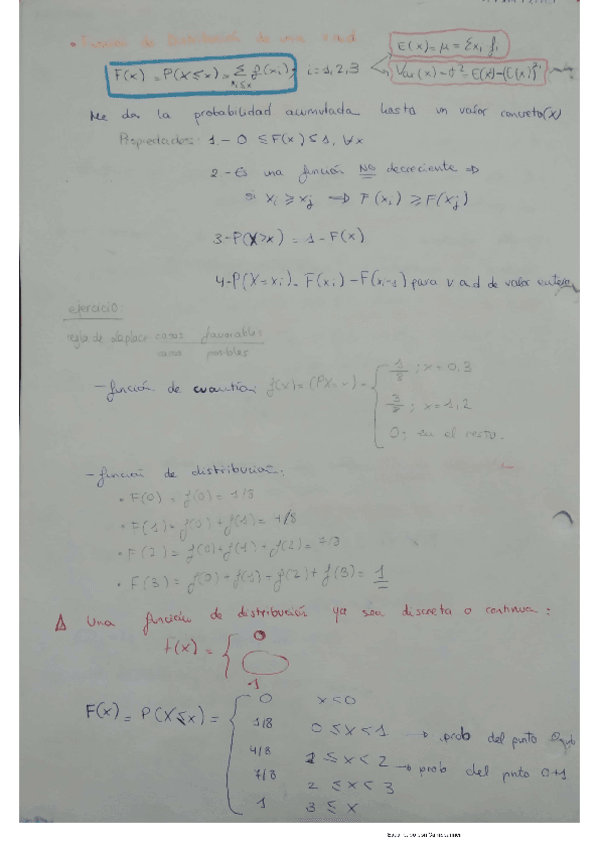 • Función de distribución de una v.a.d
E(x) = μ = Σxi fi
F(x) = P(X≤x) = Σ f(xi); i=1,2,3
xi≤x
Var(x) = σ² = E(x²)-(E(x))²
Me da la probabilidad acumulada hasta un valor concreto(x)
Propiedades: 1.- 0 ≤ F(x) ≤ 1, ∀x
2.- Es una función NO decreciente ⇒
si xi ≥ xj ⇒ F(xi) ≥ F(xj)
3-P(X>x) = 1-F(x)
4-P(X=xi)= F(xi)-F(xi-1) para v a d de valor entero
ejercicio:
regla de laplace casos favorables
casos posibles
-función de cuantía: f(x)=(PX=x)=
1/8 ; x=0,3
3/8 ; x=1,2
0; en el resto.
-función de distribución:
• F(0) = f(0) = 1/8
• F(1)= f(0)+f(1)= 4/8
• F(2) = f(0)+f(1)+f(2)= 7/8
• F(3) = f(0)+f(1)+f(2)+f(3)= 1
Δ Una función de distribución ya sea discreta o continua:
0
F(x) =
1
F(x) = P(X≤x) =
0 x<0
1/8 0≤x<1 → prob del punto
4/8 1≤x<2 → prob del pnto 0+1
7/8 2≤x<3
1 3≤x